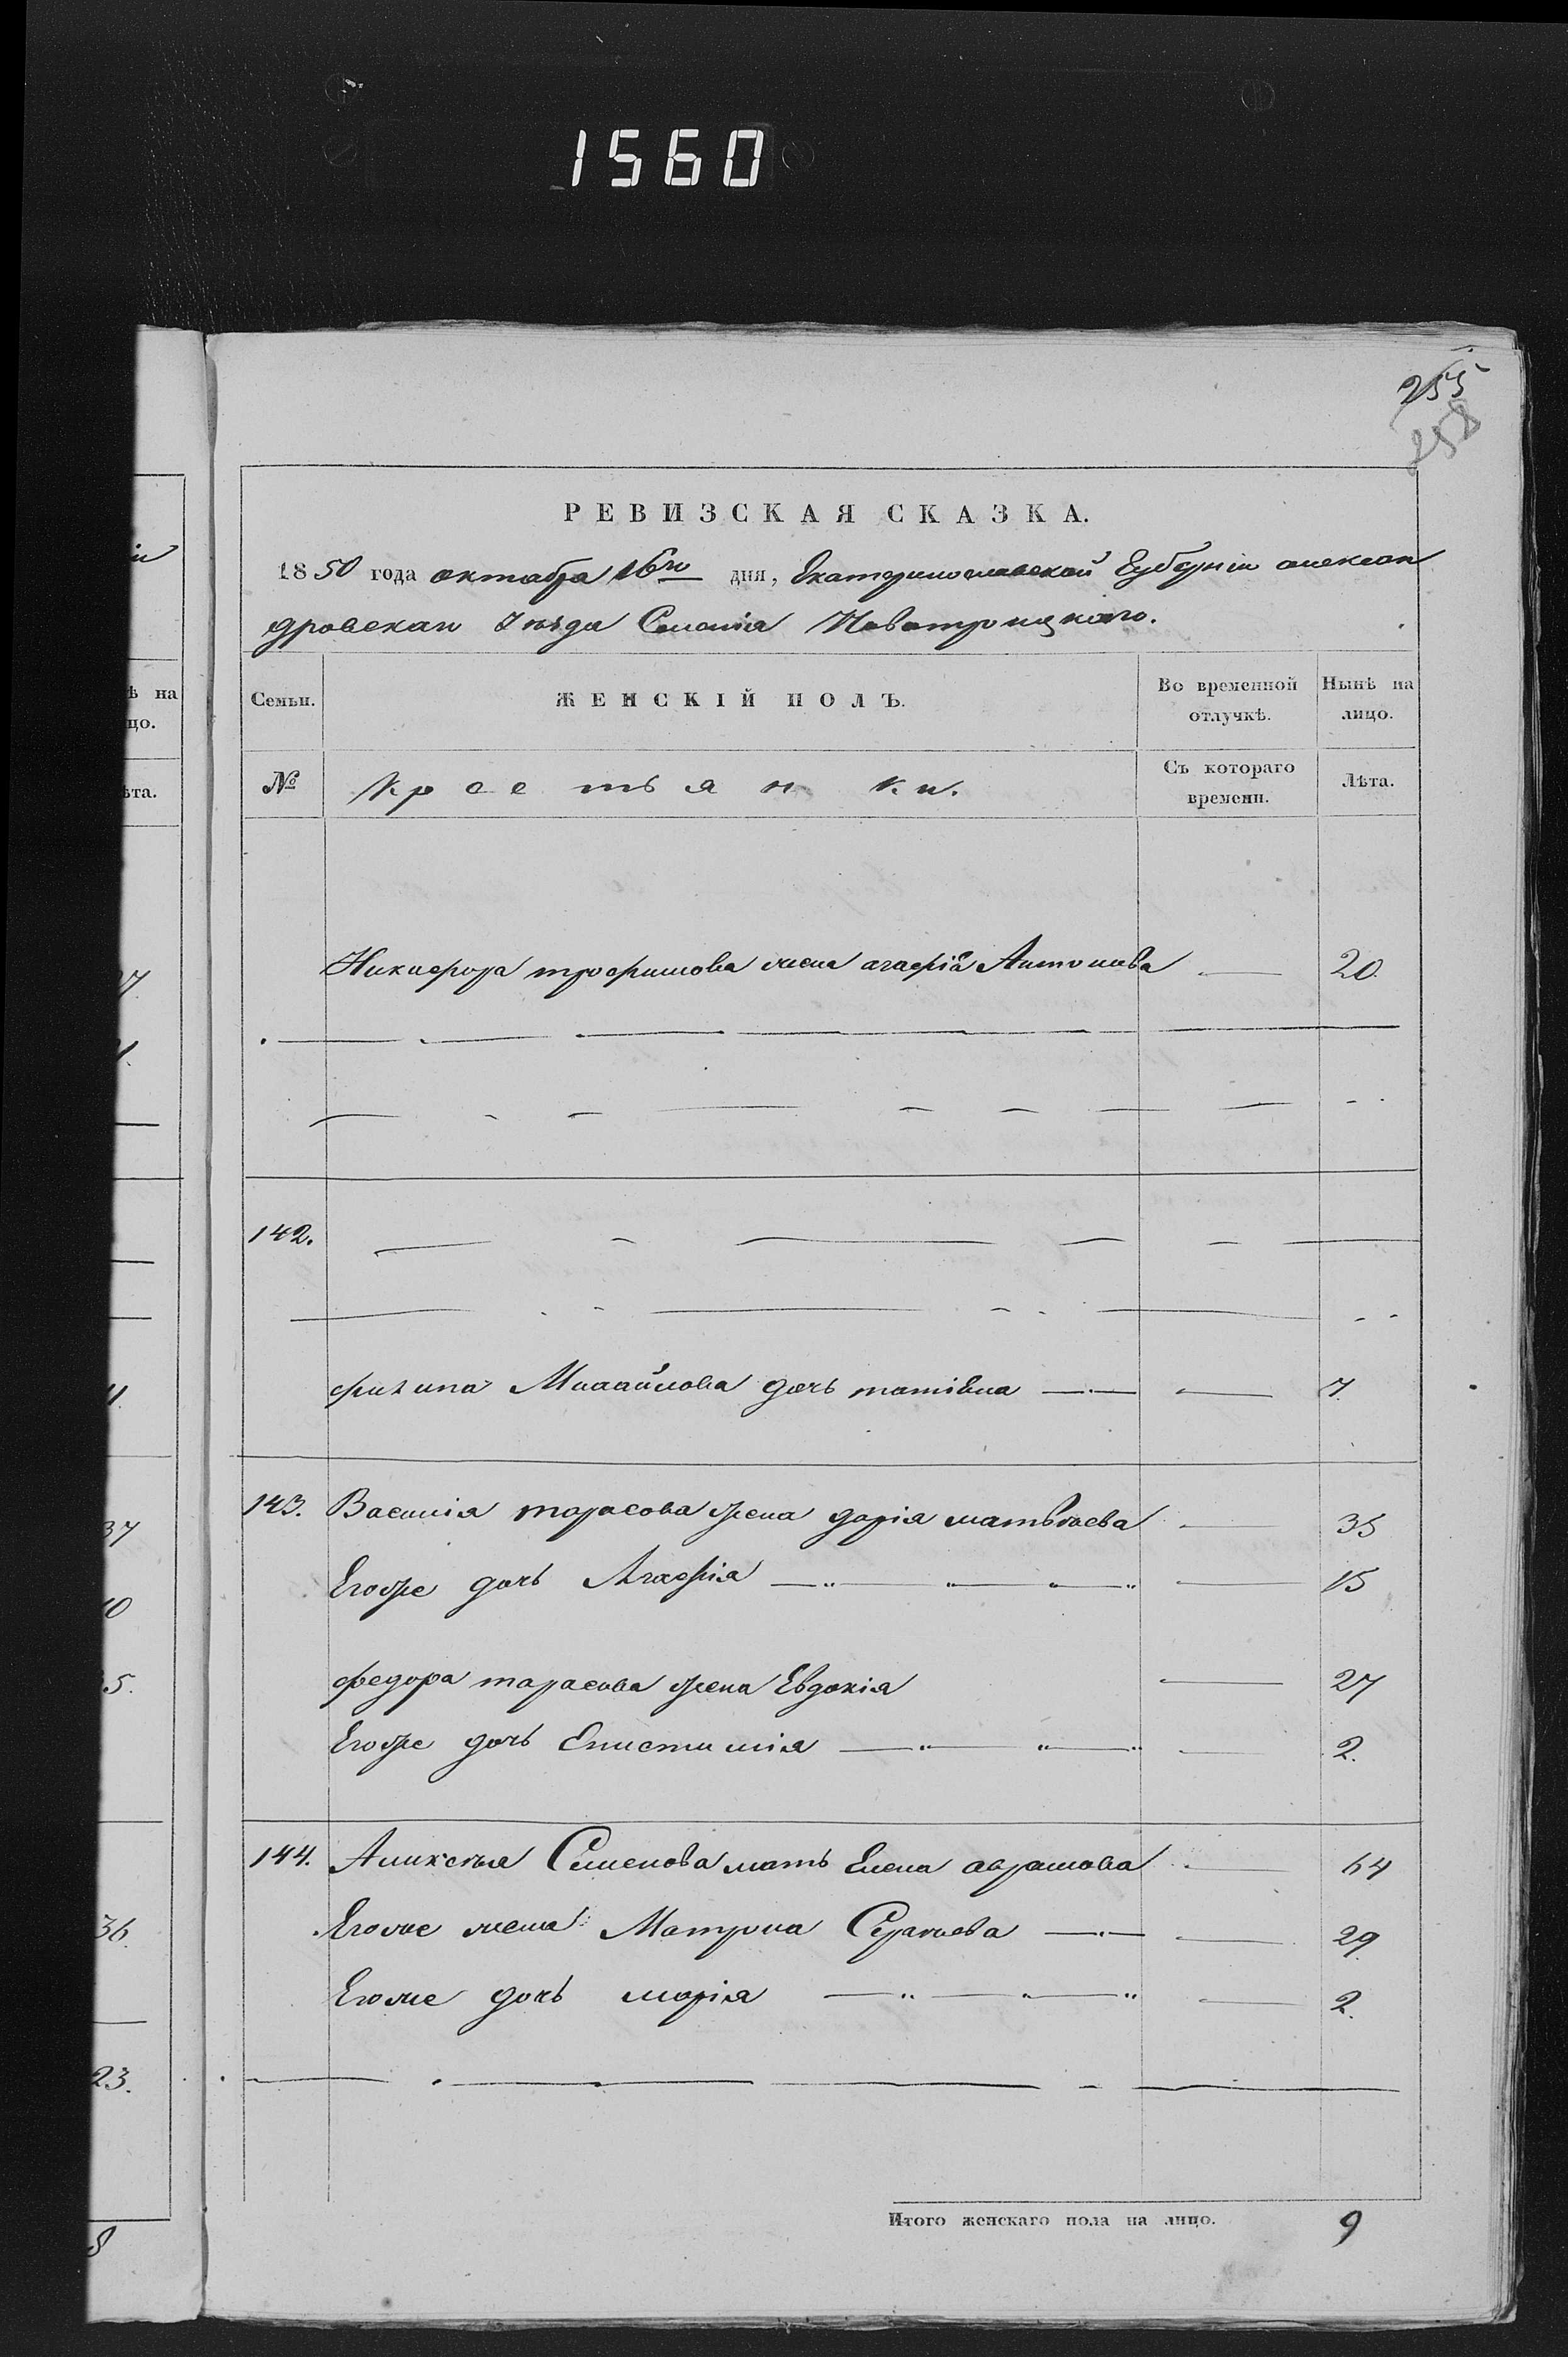 1560
255
258
РЕВИЗСКАЯ СКАЗКА.
1850 года октабра 16го дня, Екатеринославской Губерніи алексан
дровскаи Уѣзда Селенія Новотроицкаго.
Семьи. ЖЕНСКІЙ ПОЛЪ. Во временной отлучкѣ. Нынѣ на лицо.
№ Крестьянки. Съ котораго времени. Лѣта.
Никифора трофимова жена агафія Антонова — 20.
142.
филипа Михайлова дочь татіѣна — 7.
143. Василія тарасова жена дарія матвѣева — 35
Егоже дочь Агафія — 15
федора тарасова жена Евдокія — 27
Егоже дочь Епистимія — 2.
144. Аликсѣя Семенова мать Елена аврамова — 64
Егоже жена Матрона Сергѣева — 29
Егоже дочь марія — 2.
Итого женскаго пола на лицо. 9
ѣ на
цо.
ѣта.
37
10
5.
36.
23.
8